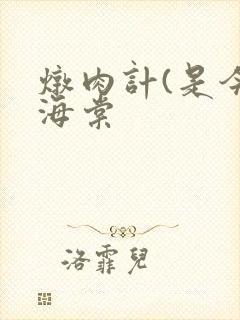 燉肉計(是今
海棠
洛霏兒